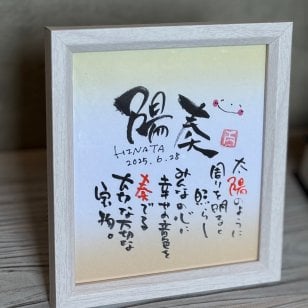 陽奏
HINATA
2025.6.28
太陽のように
周りを明るく
照らし
みんなの心に
幸せの音色を
奏でる
大切な大切な
宝物。